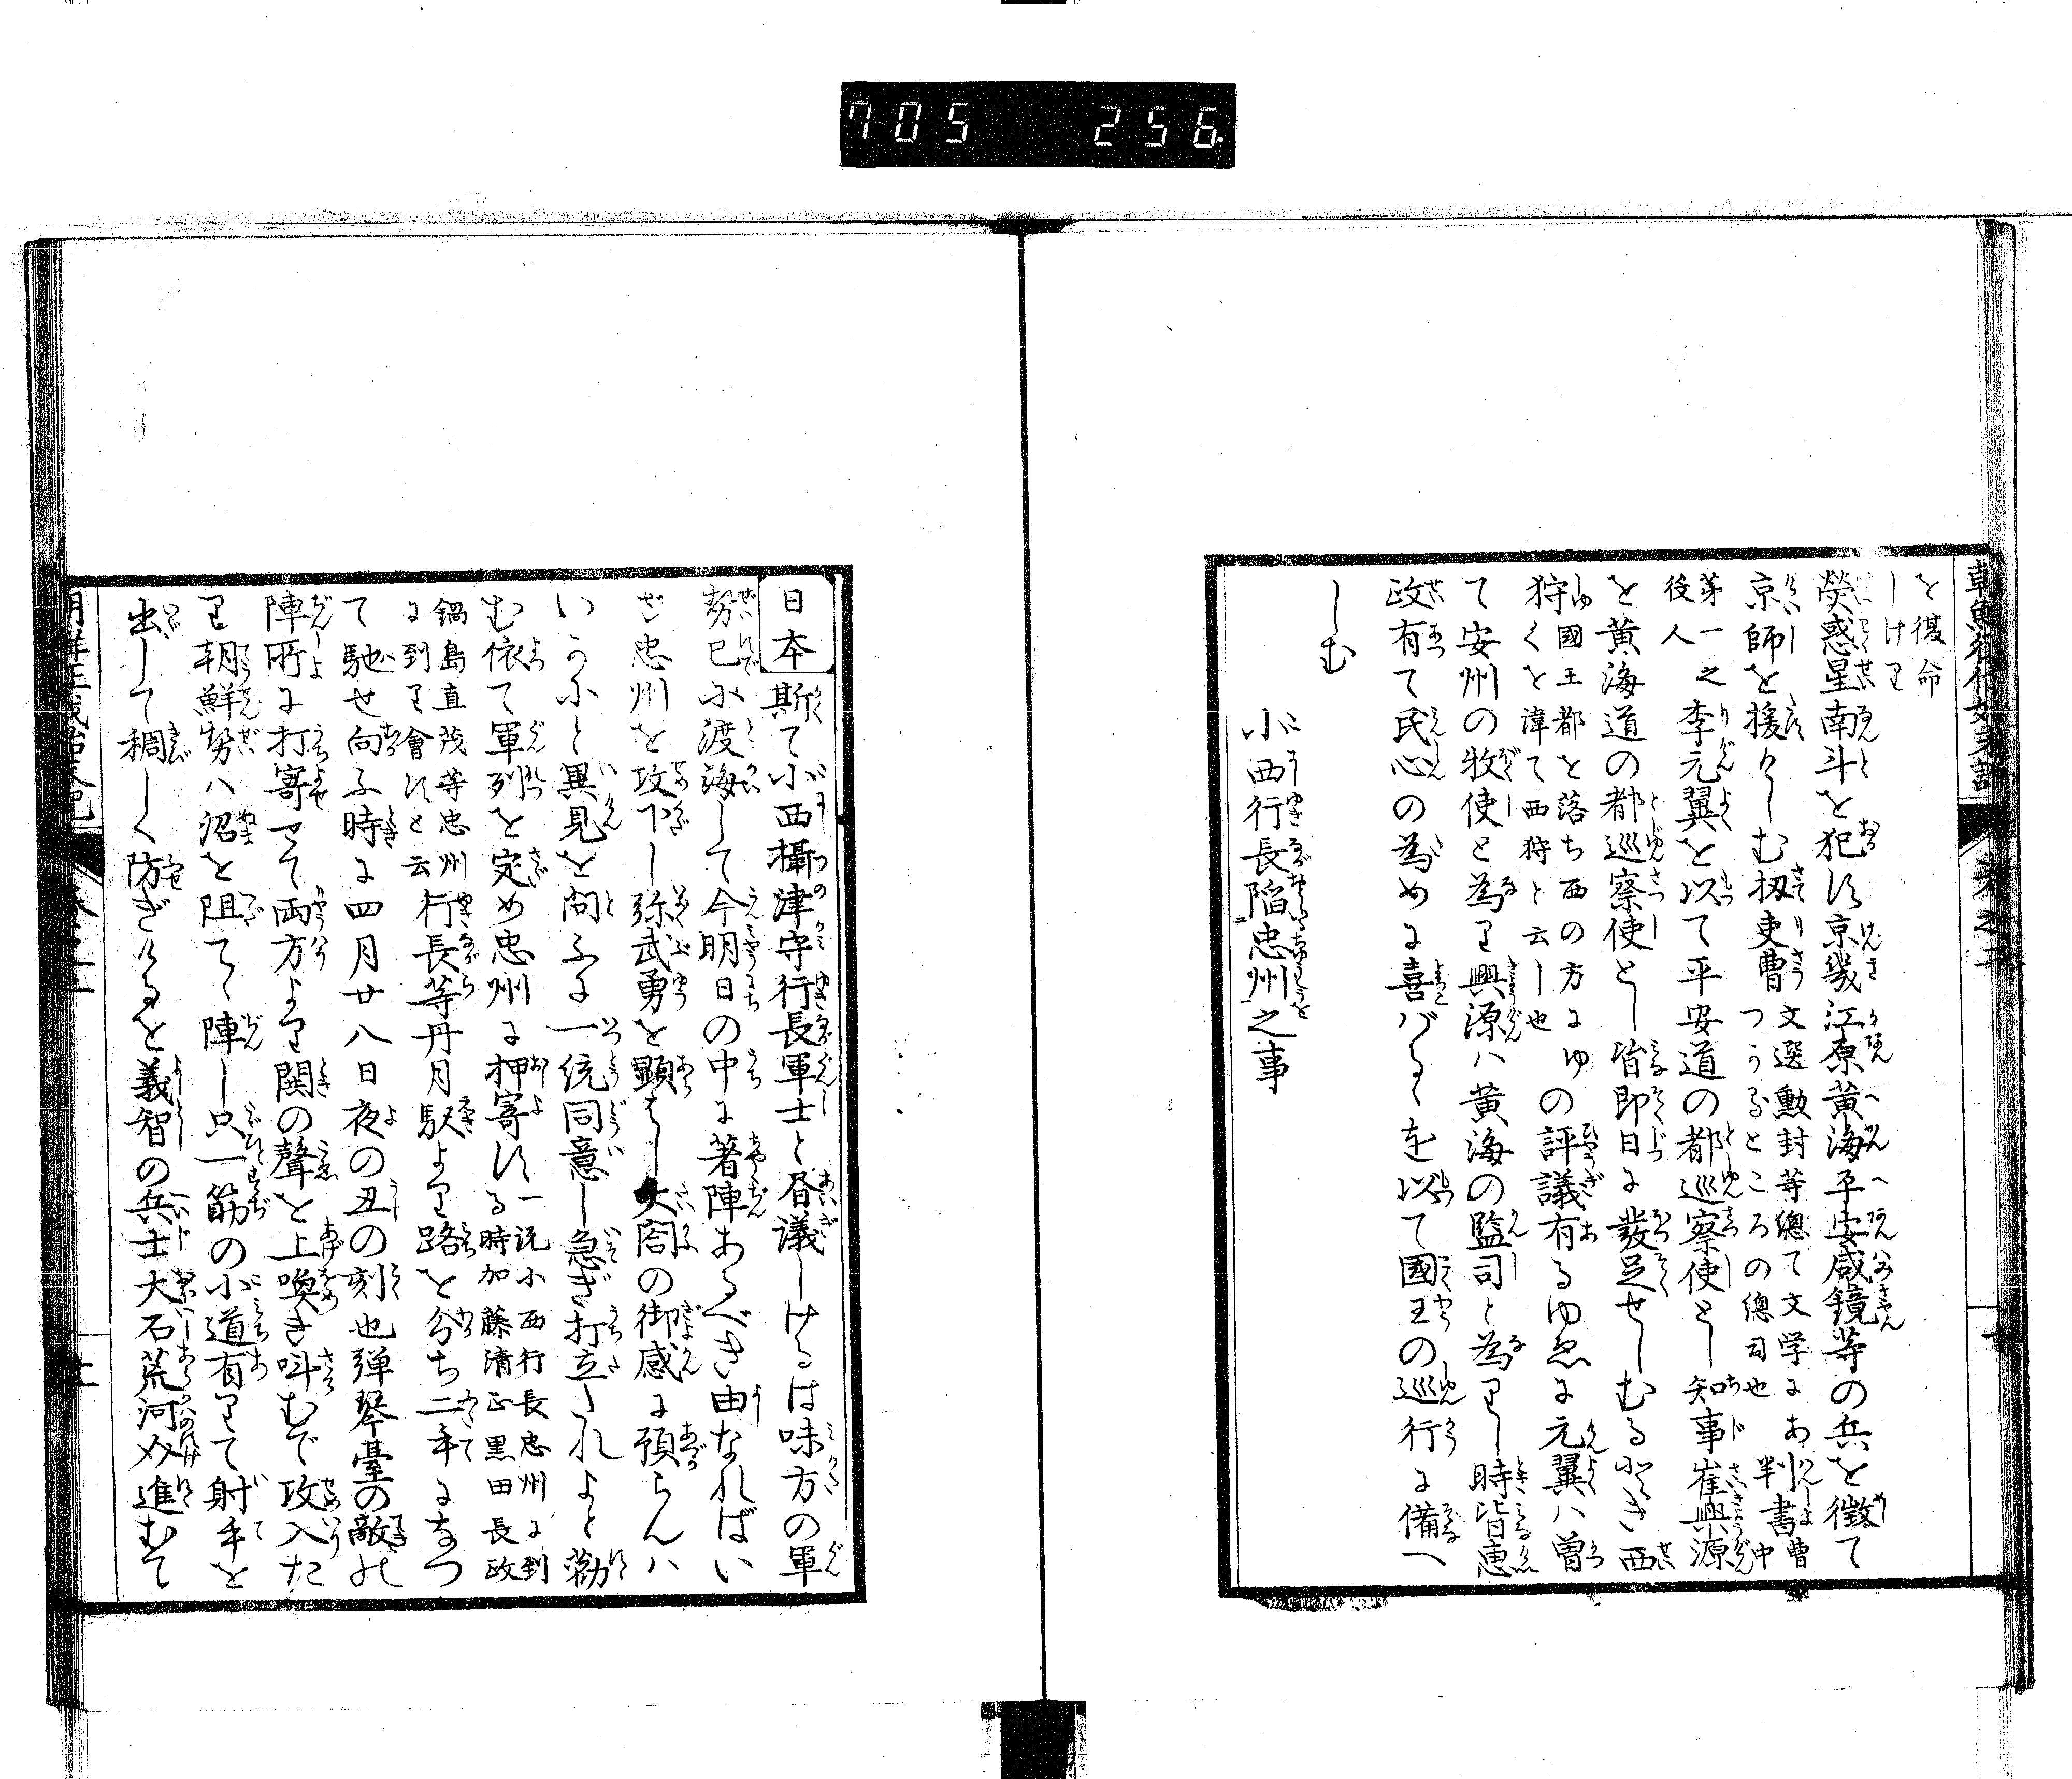 705 256
朝鮮征伐始末記 巻之二
を復命
しけり
熒惑星南斗を犯す京畿江原黄海平安咸鏡等の兵を徴て
京師を援けしむ扨吏曹文選勲封等總て文学にあつかるところの總司也判書曹中
第一之後人李元翼を以て平安道の都巡察使とし知事崔興源
を黄海道の都巡察使とし皆即日に發足せしむる也き西
狩國王都を落ち西の方にゆくを諱て西狩と云し也の評議有るゆゑに元翼ハ曽
て安州の牧使と為り興源ハ黄海の監司と為りし時皆惠
政有て民心の為めに喜バるゝを以て國王の巡行に備へ
しむ
小西行長陥忠州之事
日本斯て小西攝津守行長軍士と会議しけるは味方の軍
勢已に渡海して今明日の中に著陣あるべき由なればい
ざ忠州を攻下し弥武勇を顕はし大閤の御感に預らんハ
いかにと異見を問ふに一統同意し急ぎ打立されよと勧
む依て軍列を定め忠州に押寄する一説小西行長忠州に到る時加藤清正黒田長政
鍋島直茂等忠州に到り會すと云行長等丹月駅より路を分ち二手になつ
て馳せ向ふ時に四月廿八日夜の丑の刻也弾琴臺の敵の
陣所に打寄せて両方より鬨の聲を上喚き叫むで攻入た
り朝鮮勢ハ沼を阻てゝ陣し只一筋の小道有りて射手を
出して稠しく防ぎけるを義智の兵士大石荒河介進むて